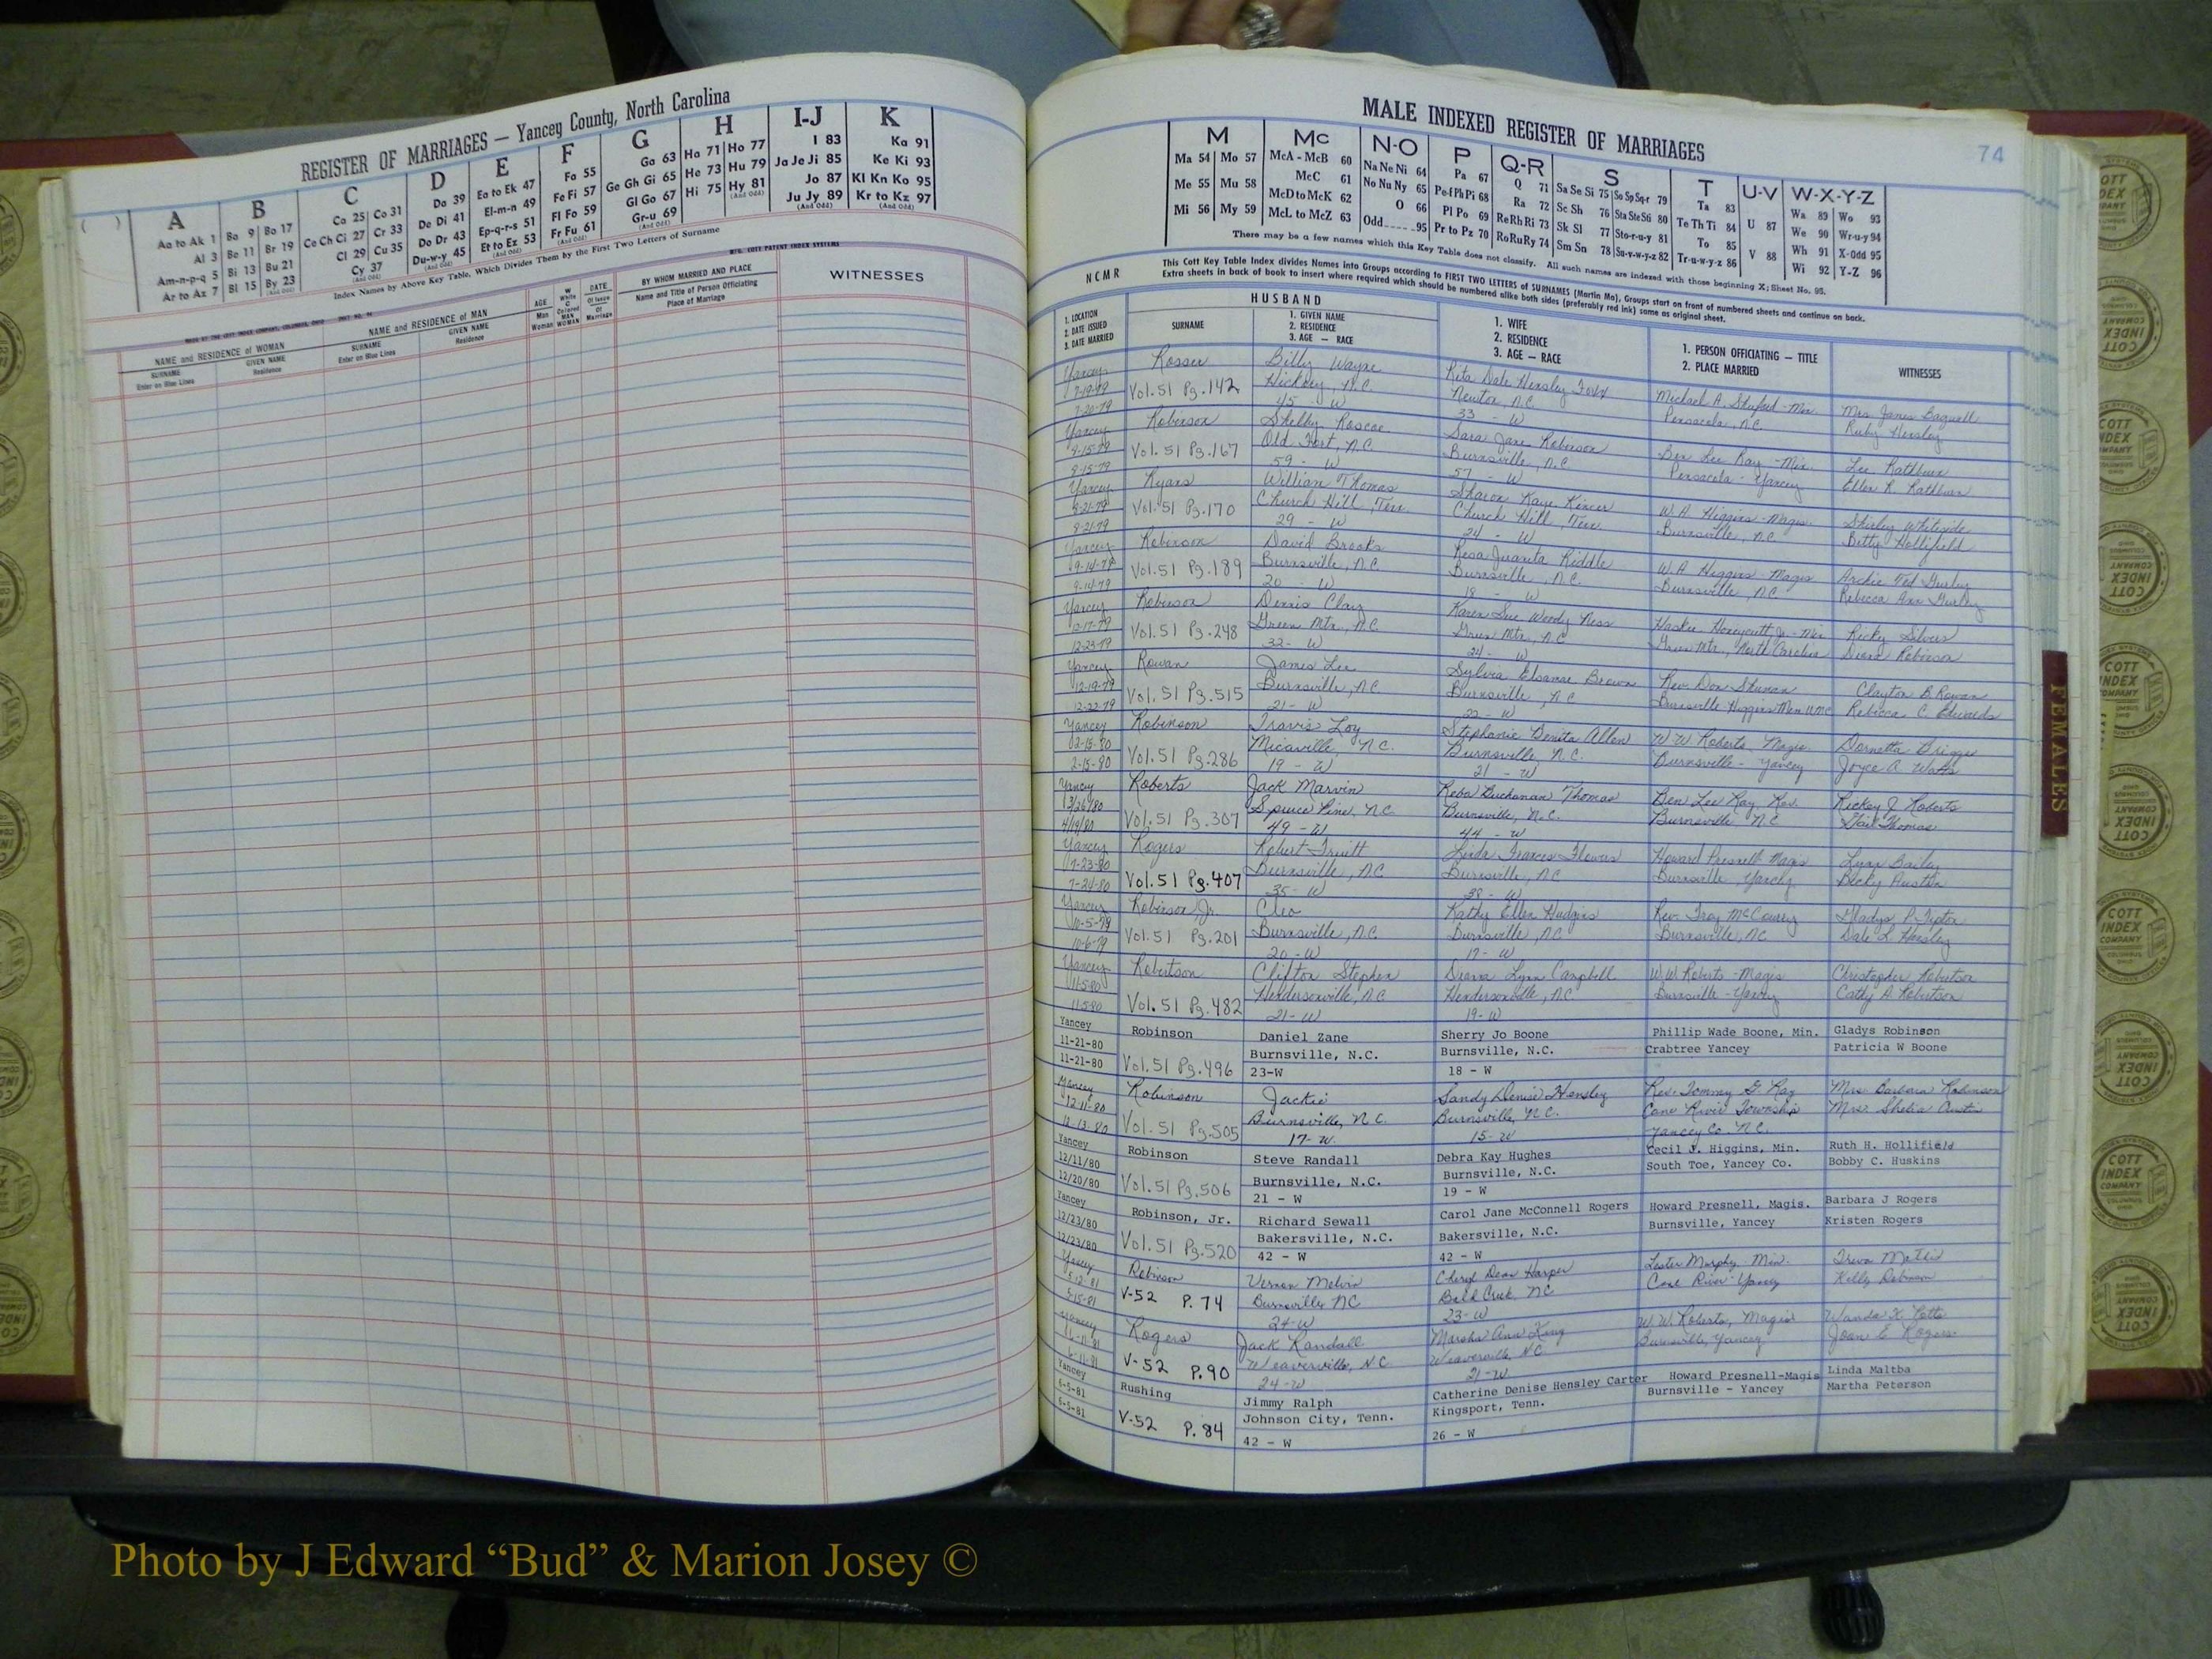 REGISTER OF MARRIAGES — Yancey County, North Carolina
A
Aa to Ak 1
Al 3
Am-n-p-q 5
Ar to Az 7
B
Ba 9 Bo 17
Be 11 Br 19
Bi 13 Bu 21
Bl 15 By 23
(And Odd)
C
Ca 25 Co 31
Ce Ch Ci 27 Cr 33
Cl 29 Cu 35
Cy 37
(And Odd)
D
Da 39
De Di 41
Do Dr 43
Du-w-y 45
(And Odd)
E
Ea to Ek 47
El-m-n 49
Ep-q-r-s 51
Et to Ez 53
(And Odd)
F
Fa 55
Fe Fi 57
Fl Fo 59
Fr Fu 61
(And Odd)
G
Ga 63
Ge Gh Gi 65
Gl Go 67
Gr-u 69
(And Odd)
H
Ha 71 Ho 77
He 73 Hu 79
Hi 75 Hy 81
(And Odd)
I-J
I 83
Ja Je Ji 85
Jo 87
Ju Jy 89
(And Odd)
K
Ka 91
Ke Ki 93
Kl Kn Ko 95
Kr to Kz 97
(And Odd)
Index Names by Above Key Table, Which Divides Them by the First Two Letters of Surname
MFG. COTT PATENT INDEX SYSTEMS
NAME and RESIDENCE of WOMAN
SURNAME
Enter on Blue Lines
GIVEN NAME
Residence
NAME and RESIDENCE of MAN
SURNAME
Enter on Blue Lines
GIVEN NAME
Residence
AGE
Man
Woman
W
White
C
Colored
MAN
WOMAN
DATE
Of Issue
Of
Marriage
BY WHOM MARRIED AND PLACE
Name and Title of Person Officiating
Place of Marriage
WITNESSES
MALE INDEXED REGISTER OF MARRIAGES
74
M
Ma 54 Mo 57
Me 55 Mu 58
Mi 56 My 59
Mc
McA - McB 60
McC 61
McD to McK 62
McL to McZ 63
N-O
Na Ne Ni 64
No Nu Ny 65
O 66
Odd 95
P
Pa 67
Pe-f Ph Pi 68
Pl Po 69
Pr to Pz 70
Q-R
Q 71
Ra 72
Re Rh Ri 73
Ro Ru Ry 74
S
Sa Se Si 75 So Sp Sq-r 79
Sc Sh 76 Sta Ste Sti 80
Sk Sl 77 Sto-r-u-y 81
Sm Sn 78 Su-v-w-y-z 82
T
Ta 83
Te Th Ti 84
To 85
Tr-u-w-y-z 86
U-V
U 87
V 88
W-X-Y-Z
Wa 89 Wo 93
We 90 Wr-u-y 94
Wh 91 X-Odd 95
Wi 92 Y-Z 96
There may be a few names which this Key Table does not classify. All such names are indexed with those beginning X; Sheet No. 95.
NCMR
This Cott Key Table Index divides Names into Groups according to FIRST TWO LETTERS of SURNAMES (Martin Ma). Groups start on front of numbered sheets and continue on back.
Extra sheets in back of book to insert where required which should be numbered alike both sides (preferably red ink) same as original sheet.
1. LOCATION
2. DATE ISSUED
3. DATE MARRIED
HUSBAND
SURNAME
1. GIVEN NAME
2. RESIDENCE
3. AGE — RACE
1. WIFE
2. RESIDENCE
3. AGE — RACE
1. PERSON OFFICIATING — TITLE
2. PLACE MARRIED
WITNESSES
Yancey Rosser Billy Wayne Rita Dale Hensley Michael A. Shuford - Min. Mrs. James Bagwell
7-19-79 Vol. 51 Pg. 142 Hickory, N.C. Newton, N.C. Pensacola, N.C. Ruby Hensley
7-20-79 45 - W 33 - W
Yancey Robinson Shelby Roscoe Sara Jane Robinson Ben Lee Ray - Min. Lee Rathburn
8-15-79 Vol. 51 Pg. 167 Old Fort, N.C. Burnsville, N.C. Pensacola - Yancey Ellen R. Rathburn
8-15-79 59 - W 57 - W
Yancey Ryans William Thomas Sharon Kaye Kincer W.A. Higgins - Magis. Shirley Whiteside
8-21-79 Vol. 51 Pg. 170 Church Hill, Tenn Church Hill, Tenn. Burnsville, N.C. Betty Hollifield
8-21-79 29 - W 24 - W
Yancey Robinson David Brooks Resa Juanita Riddle W.A. Higgins - Magis Archie Ted Gurley
9-14-79 Vol. 51 Pg. 189 Burnsville, N.C. Burnsville, N.C. Burnsville, N.C. Rebecca Ann Gurley
9-14-79 20 - W 18 - W
Yancey Robinson Dennis Clay Karen Sue Woody Ness Honeycutt, Jr. - Min Ricky Silvers
12-17-79 Vol. 51 Pg. 248 Green Mtn., N.C. Green Mtn., N.C. Green Mtn., North Carolina David Robinson
12-23-79 32 - W 24 - W
Yancey Rowan James Lee Sylvia Brown Rev. Don Shuman Clayton B. Rowan
12-19-79 Vol. 51 Pg. 515 Burnsville, N.C. Burnsville, N.C. Burnsville Higgins Mem UMC Rebecca C. Edwards
12-22-79 21 - W 22 - W
Yancey Robinson Travis Loy Stephanie Denita Allen W.W. Roberts, Magis Dornetta Briggs
2-15-80 Vol. 51 Pg. 286 Micaville, N.C. Burnsville, N.C. Burnsville - Yancey Joyce A. Watts
2-15-80 19 - W 21 - W
Yancey Roberts Jack Marvin Reba Buchanan Thomas Ben Lee Ray, Rev. Rickey J. Roberts
3/26/80 Vol. 51 Pg. 307 Spruce Pine, N.C. Burnsville, N.C. Burnsville N.C. Gail Thomas
4/19/80 49 - W 44 - W
Yancey Rogers Robert Truitt Linda Frances Flowers Howard Presnell Magis Lynn Bailey
7-23-80 Vol. 51 Pg. 407 Burnsville, N.C. Burnsville, N.C. Burnsville, Yancey Becky Austin
7-24-80 35 - W 38 - W
Yancey Robinson, Jr. Cleo Kathy Ellen Hudgins Rev. Troy McCourry Gladys P. Tipton
10-5-79 Vol. 51 Pg. 201 Burnsville, N.C. Burnsville, N.C. Burnsville, N.C. Dale L. Hensley
10-6-79 20 - W 17 - W
Yancey Robertson Clifton Stephen Diana Lynn Campbell W.W. Roberts - Magis Christopher Robertson
11-5-80 Vol. 51 Pg. 482 Hendersonville, N.C. Hendersonville, N.C. Burnsville - Yancey Cathy A. Robertson
11-5-80 21 - W 19 - W
Yancey Robinson Daniel Zane Sherry Jo Boone Phillip Wade Boone, Min. Gladys Robinson
11-21-80 Burnsville, N.C. Burnsville, N.C. Crabtree Yancey Patricia W Boone
11-21-80 Vol. 51 Pg. 496 23-W 18 - W
Yancey Robinson Jackie Sandy Denise Hensley Rev. Tommy G. Ray Mrs. Barbara Robinson
12-11-80 Burnsville, N.C. Burnsville, N.C. Cane River Township Mrs. Shelia Austin
12-13-80 Vol. 51 Pg. 505 17 - W. 15 - W Yancey Co. N.C.
Yancey Robinson Steve Randall Debra Kay Hughes Cecil J. Higgins, Min. Ruth H. Hollifield
12/11/80 Burnsville, N.C. Burnsville, N.C. South Toe, Yancey Co. Bobby C. Huskins
12/20/80 Vol. 51 Pg. 506 21 - W 19 - W
Yancey Robinson, Jr. Richard Sewall Carol Jane McConnell Rogers Howard Presnell, Magis. Barbara J Rogers
12/23/80 Bakersville, N.C. Bakersville, N.C. Burnsville, Yancey Kristen Rogers
12/23/80 Vol. 51 Pg. 520 42 - W 42 - W
Yancey Robinson Vernon Melvin Cheryl Dean Harper Lester Murphy, Min.
5-12-81 V-52 P. 74 Burnsville NC Bald Creek, NC Cane River Yancey Kelly Robinson
5-15-81 24-W 23-W
Yancey Rogers Jack Randall Marsha Ann King W.W. Roberts, Magis Wanda K. Potts
6-11-81 V-52 P. 90 Weaverville, N.C. Weaverville, N.C. Burnsville, Yancey Joan C Rogers
6-11-81 24-W 21-W
Yancey Rushing Jimmy Ralph Catherine Denise Hensley Carter Howard Presnell-Magis Linda Maltba
6-5-81 Johnson City, Tenn. Kingsport, Tenn. Burnsville - Yancey Martha Peterson
6-5-81 V-52 P. 84 42 - W 26 - W
FEMALES
COTT
INDEX
COMPANY
Photo by J Edward “Bud” & Marion Josey ©